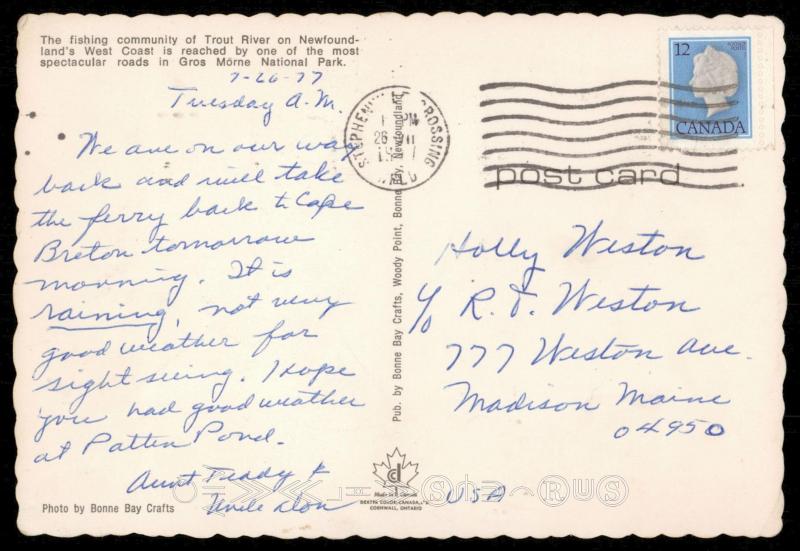 The fishing community of Trout River on Newfound-
land's West Coast is reached by one of the most
spectacular roads in Gros Morne National Park.
7-26-77
Tuesday A.M.
We are on our way
back and will take
the ferry back to Cape
Breton tomorrow
morning. It is
raining, not very
good weather for
sight seeing. I hope
you had good weather
at Patten Pond.
Aunt Teddy &
Uncle Don
Photo by Bonne Bay Crafts
Pub. by Bonne Bay Crafts, Woody Point, Bonne Bay, Newfoundland
Made in Canada
DEXTER COLOR CANADA
CORNWALL, ONTARIO
CROSSING
PM
26
NFLD
12
CANADA
post card
Holly Weston
c/o R. D. Weston
777 Weston Ave.
Madison Maine
04950
USA